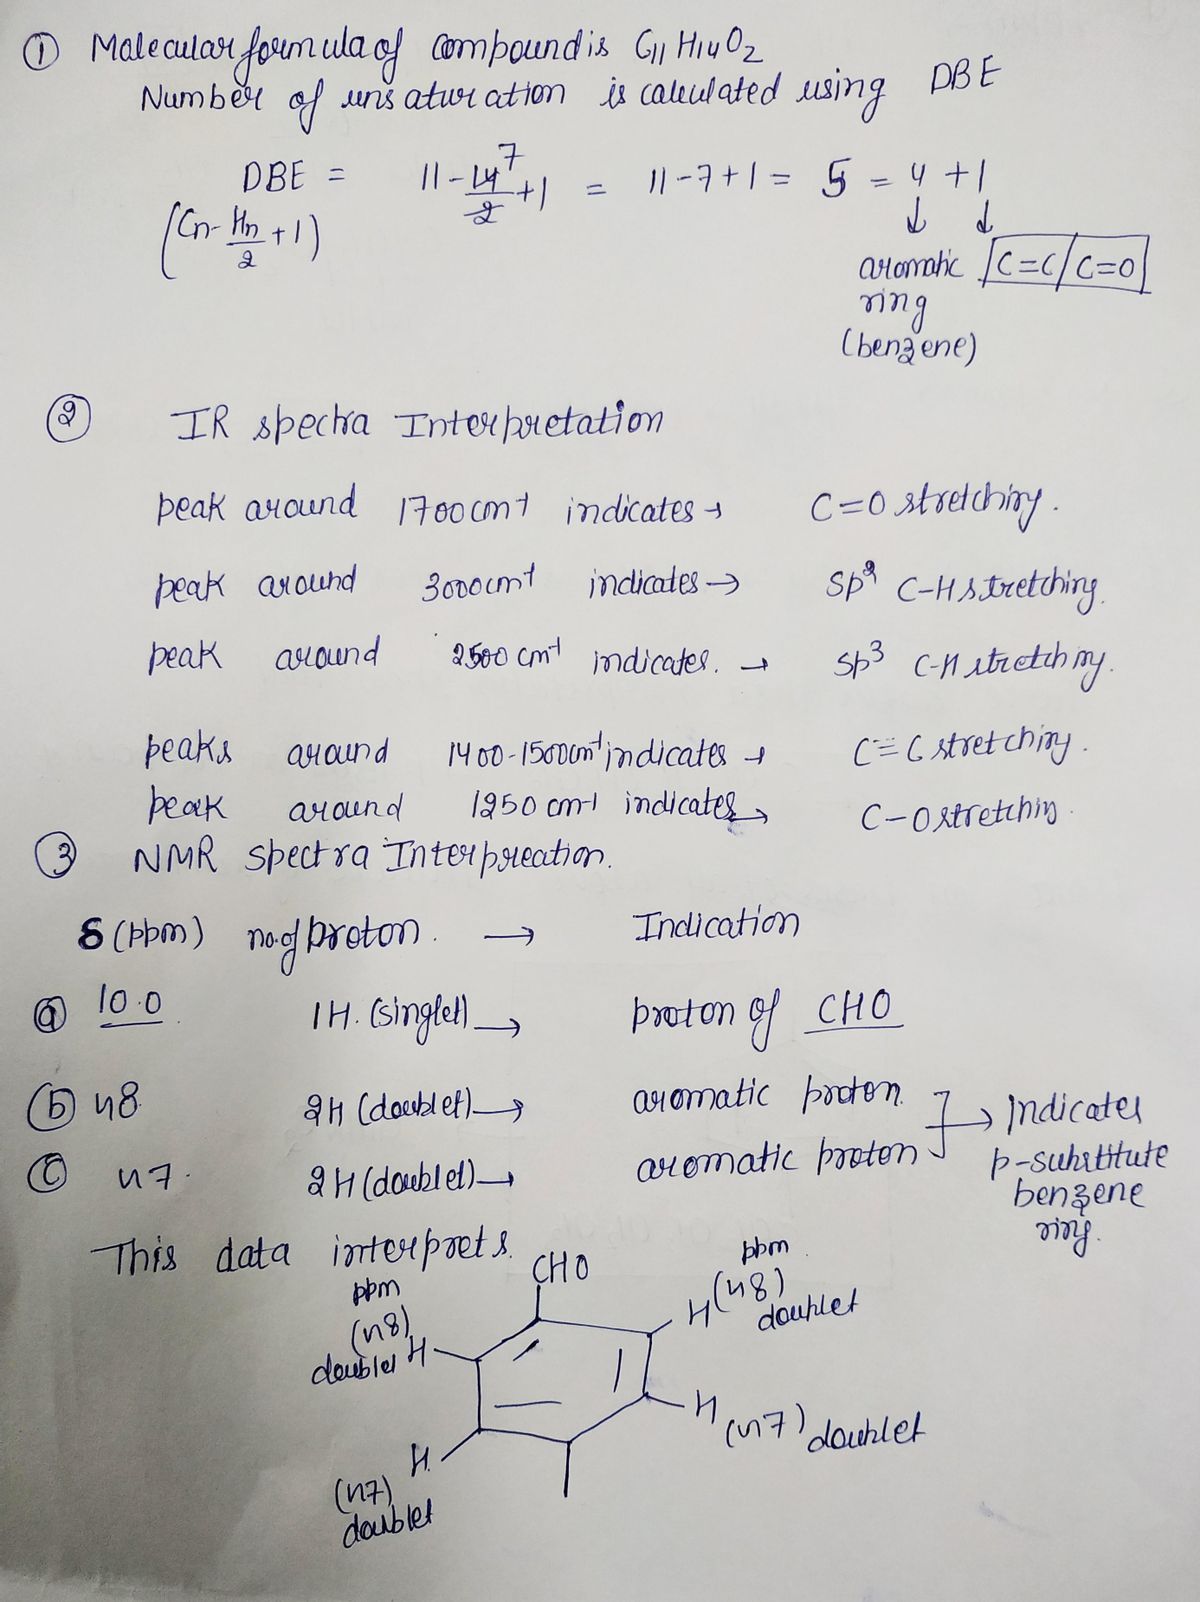 ① Molecular formula of compound is C11 H14 O2
Number of unsaturation is calculated using DBE
DBE = 11 - 14/2 7 + 1 = 11 - 7 + 1 = 5 = 4 + 1
(Cn - Hn/2 + 1)
aromatic ring (benzene) C=C/C=O
② IR spectra Interpretation
peak around 1700 cm-1 indicates → C=O stretching.
peak around 3000 cm-1 indicates → Sp2 C-H stretching.
peak around 2500 cm-1 indicates. → Sp3 C-H stretching.
peaks around 1400-1500 cm-1 indicates → C=C stretching.
peak around 1250 cm-1 indicates → C-O stretching
③ NMR spectra Interpreation.
δ (ppm) no. of proton. → Indication
ⓐ 10.0 1H. (singlet) → proton of CHO
ⓑ ~8 2H (doublet) → aromatic proton.
ⓒ ~7. 2H (doublet) → aromatic proton
→ Indicates
p-substitute
benzene
ring.
This data interprets.
CHO
ppm
(~8)
doublet H
ppm
H (~8)
doublet
H (~7) doublet
H
(~7)
doublet